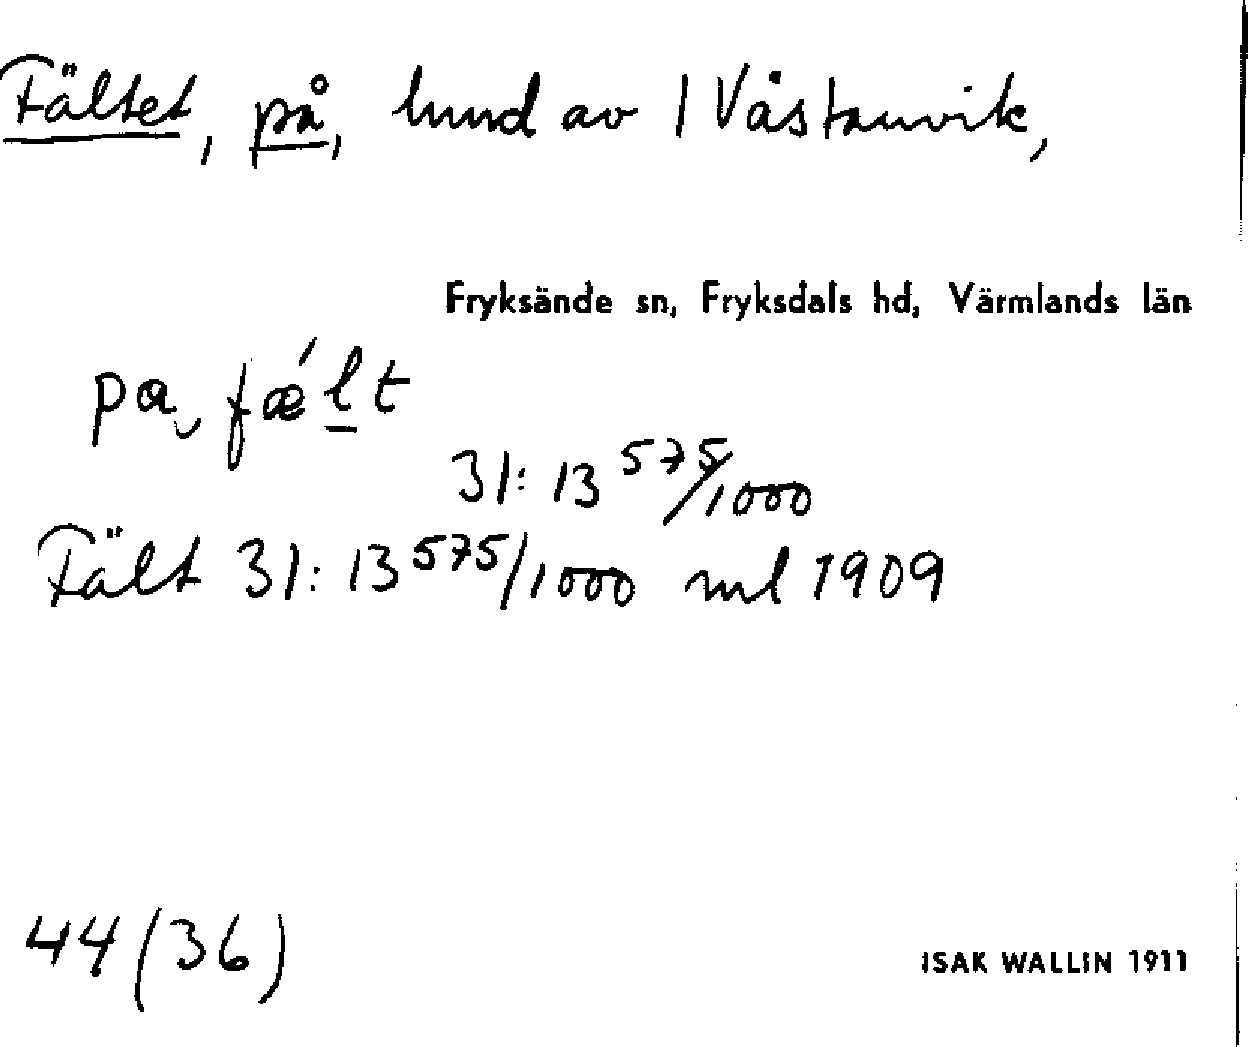 Fältet, på, lund av 1 Västanvik,
Fryksände sn, Fryksdals hd, Värmlands län
pa fǽlt
31:13 575/1000
Fält 31:13 575/1000 ml 1909
44 (36)
ISAK WALLIN 1911